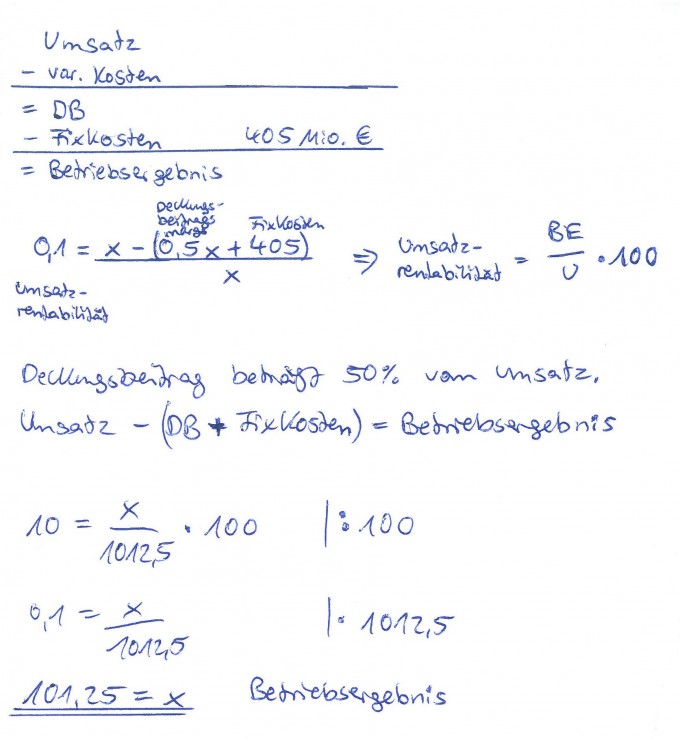 Umsatz
- var. Kosten
= DB
- Fixkosten 405 Mio. €
= Betriebsergebnis
Deckungs-
beitrags
marge Fixkosten
0,1 = x - (0,5x + 405) / x => Umsatz-rentabilität = BE / U • 100
Umsatz-
rentabilität
Deckungsbeitrag beträgt 50% vom Umsatz.
Umsatz - (DB + Fixkosten) = Betriebsergebnis
10 = x / 1012,5 • 100 |: 100
0,1 = x / 1012,5 |• 1012,5
101,25 = x Betriebsergebnis